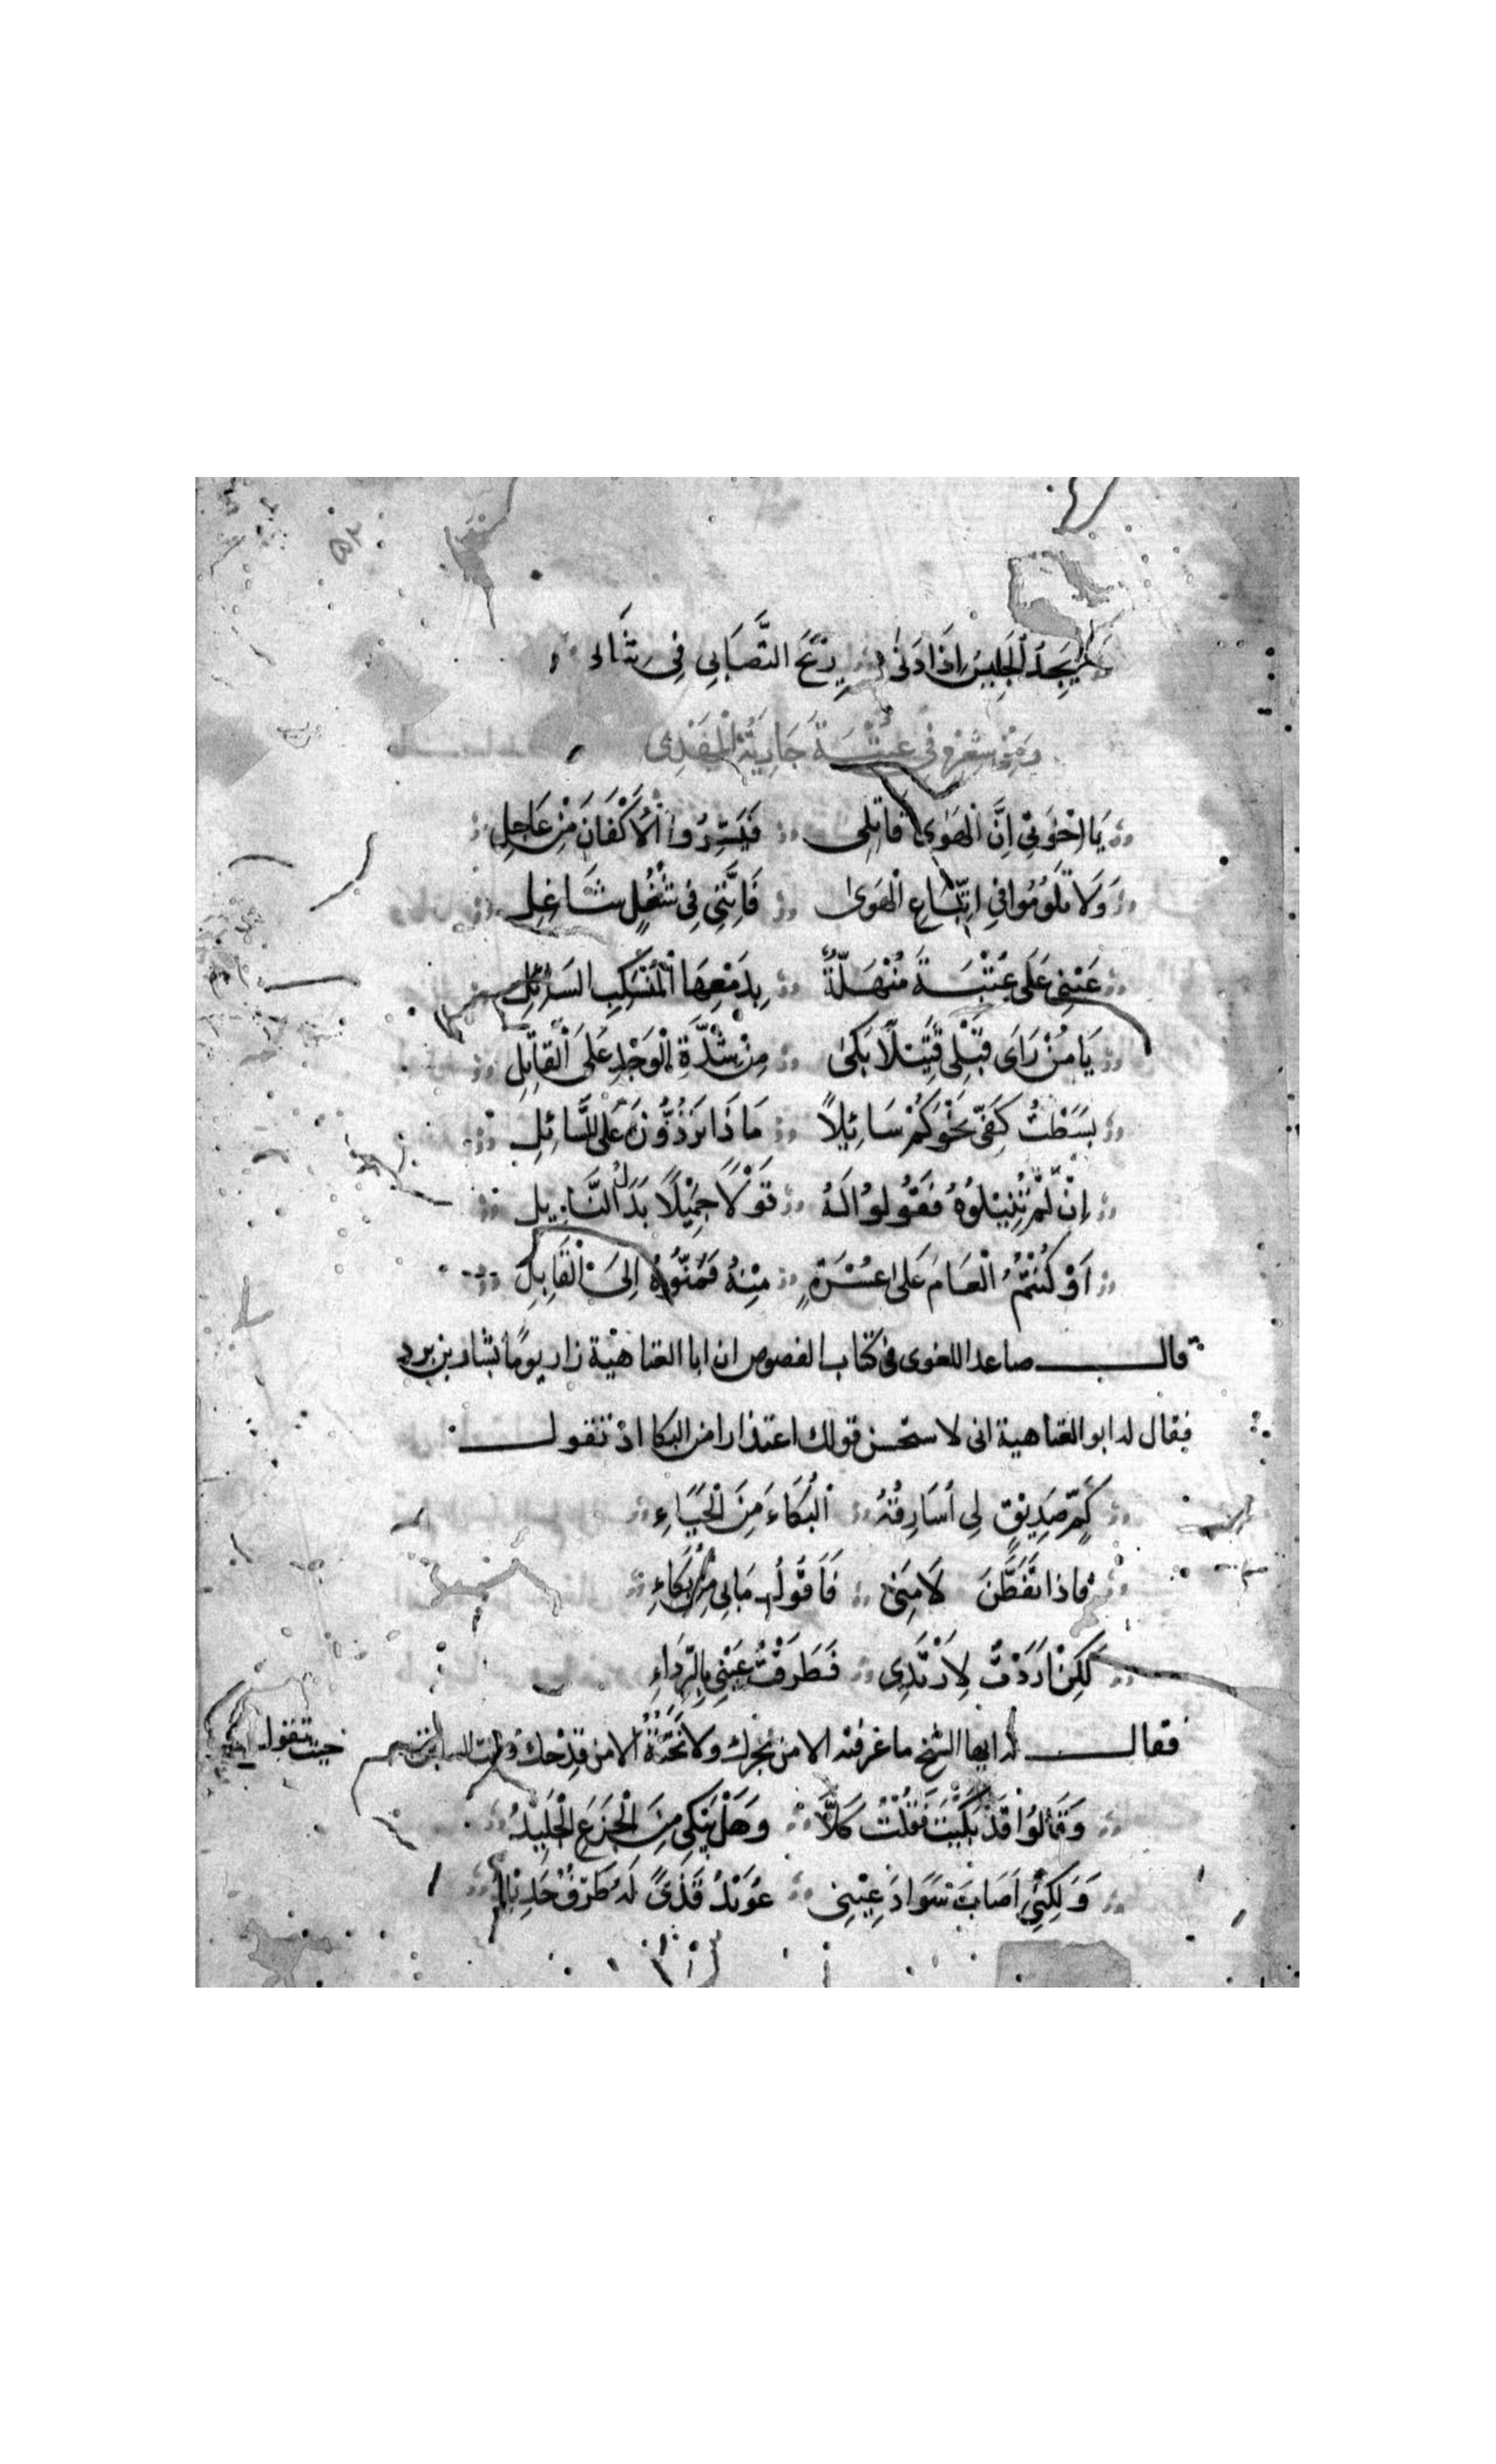 يَجِدُ الجَلِيسُ اِذَا دَنٰى رِيْحَ التَّصَابِي فِي ثِيَابِي
وَمِنْ شِعْرِهِ فِي عُتْبَةَ جَارِيَةُ الْمَهْدِي
يَا اِخْوَتِي اِنَّ الْهَوَى قَاتِلِي فَيَسِّرُوا الْاَكْفَانَ مِنْ عَاجِلِ
وَلَا تَلُوْمُوا فِي اِتِّبَاعِ الْهَوَى فَاِنَّنِي فِي شُغُلٍ شَاغِلِ
عَيْنِي عَلَى عُتْبَةَ مُنْهَلَّةٌ بِدَمْعِهَا الْمُنْسَكِبِ السَّائِلِ
يَا مَنْ رَاَى قَبْلِي قَتِيْلًا بَكَى مِنْ شِدَّةِ الْوَجْدِ عَلَى الْقَاتِلِ
بَسَطْتُ كَفِّي نَحْوَكُمْ سَائِلًا مَا ذَا تَرُدُّوْنَ عَلَى السَّائِلِ
اِنْ لَمْ تُنِيْلُوْهُ فَقُوْلُوْا لَهُ قَوْلًا جَمِيْلًا بَدَلَ النَّايِلِ
اَوْ كُنْتُمُ الْعَامَ عَلَى عُسْرَةٍ مِنْهُ فَمَنُّوْهُ اِلَى الْقَابِلِ
قال صاعد اللغوى فى كتاب الفصوص ان ابا العتاهية زار يومًا بشار بن برد
فقال له ابو العتاهية انى لاستحسن قولك اعتذارا من البكا اذ تقول
كَمْ صَدِيْقٍ لِي أُسَارِقُهُ الْبُكَاءَ مِنَ الْحَيَاءِ
فاذا تَفَطَّنَ لَامَنِي فَاَقُوْلُ مَا بِي مِنْ بُكَاءِ
لَكِنْ اَرَدْتُ لِاَرْتَدِي فَطَرَفْتُ عَيْنِي بِالرِّدَاءِ
فقال له ايها الشيخ ما غرفته الا من بحرك ولا نَحَتُّهُ الا من قِدْحك حيث تقول
وَقَالُوْا قَدْ بَكَيْتَ فَقُلْتُ كَلَّا وَهَلْ يَبْكِي مِنَ الْجَزَعِ الْجَلِيْدُ
وَلَكِنِّي اَصَابَ سَوَادَ عَيْنِي عُوَيْدُ قَذًى لَهُ طَرَفٌ حَدِيْدُ